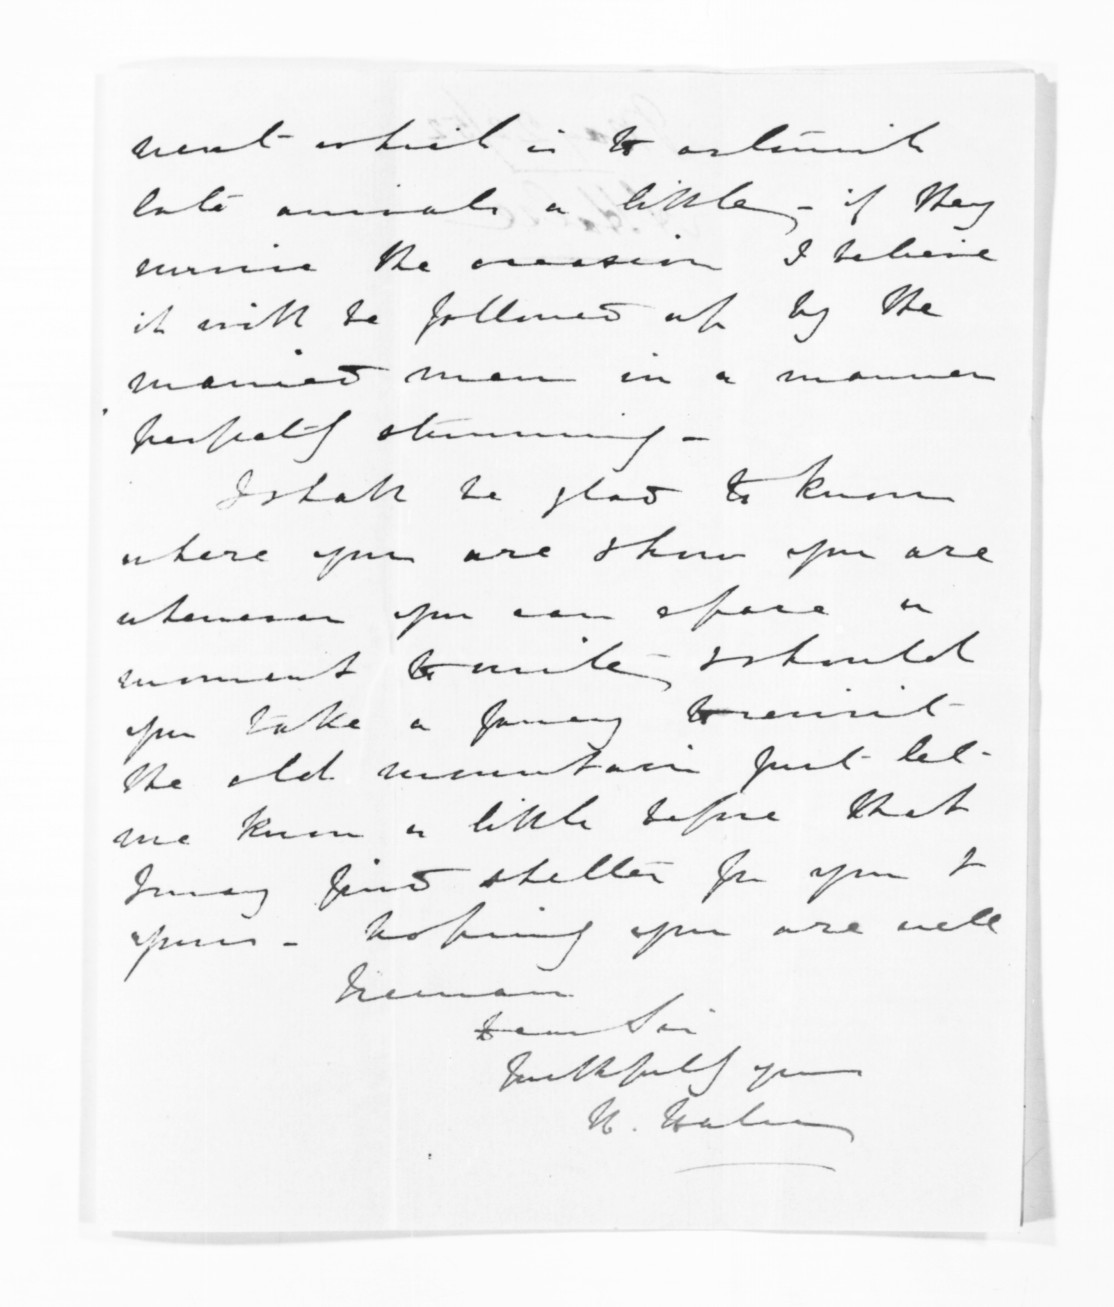 ment which is to astonish
late arrivals a little, - if they
survive the occasion I believe
it will be followed up by the
married men in a manner
perfectly stunning -
I shall be glad to know
where you are & how you are
whenever you can spare a
moment to write, & should
you take a fancy to revisit
the old mountain just let
me know a little before that
I may find shelter for you &
yours - Hoping you are well
I remain
Dear Sir
Faithfully yours
H.